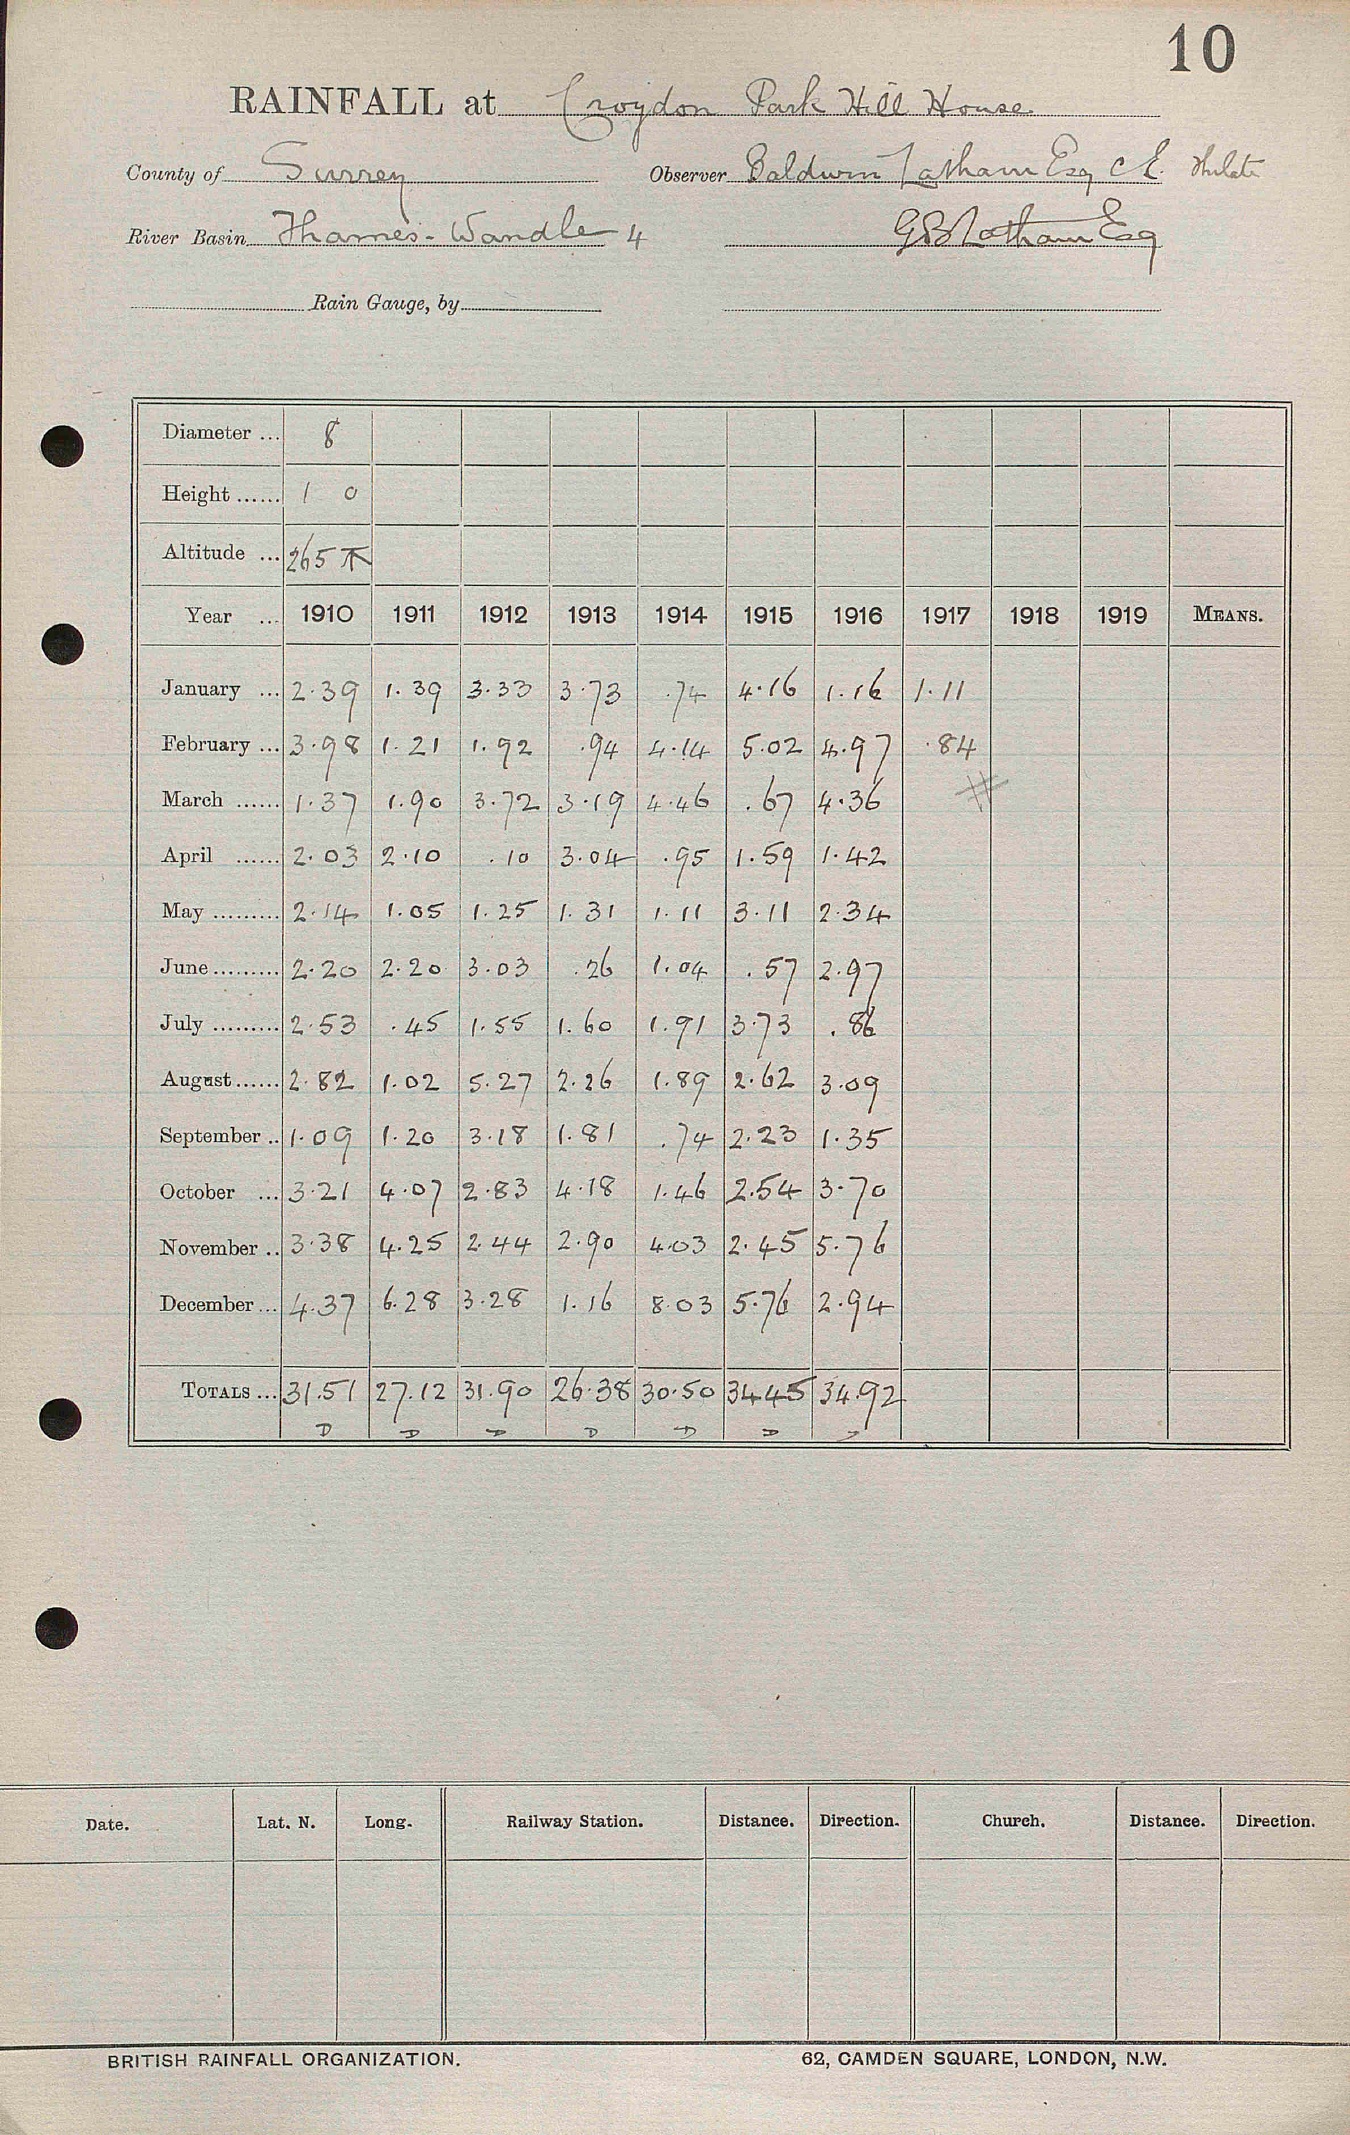 10
RAINFALL at Croydon Park Hill House
County of Surrey Observer Baldwin Latham Esq C E.
River Basin Thames - Wandle 4 G B Latham Esq
Rain Gauge, by
Diameter ... 8
Height ...... 1 0
Altitude ... 265
Year ... 1910 1911 1912 1913 1914 1915 1916 1917 1918 1919 MEANS.
January ... 2.39 1.39 3.33 3.73 .74 4.16 1.16 1.11
February ... 3.98 1.21 1.92 .94 4.14 5.02 4.97 .84
March ...... 1.37 1.90 3.72 3.19 4.46 .67 4.36 #
April ...... 2.03 2.10 .10 3.04 .95 1.59 1.42
May ......... 2.14 1.05 1.25 1.31 1.11 3.11 2.34
June ......... 2.20 2.20 3.03 .26 1.04 .57 2.97
July ......... 2.53 .45 1.55 1.60 1.91 3.73 .86
August ...... 2.82 1.02 5.27 2.26 1.89 2.62 3.09
September .. 1.09 1.20 3.18 1.81 .74 2.23 1.35
October ... 3.21 4.07 2.83 4.18 1.46 2.54 3.70
November .. 3.38 4.25 2.44 2.90 4.03 2.45 5.76
December ... 4.37 6.28 3.28 1.16 8.03 5.76 2.94
TOTALS ... 31.51 27.12 31.90 26.38 30.50 34.45 34.92
D D D D D D
Date. Lat. N. Long. Railway Station. Distance. Direction. Church. Distance. Direction.
BRITISH RAINFALL ORGANIZATION. 62, CAMDEN SQUARE, LONDON, N.W.